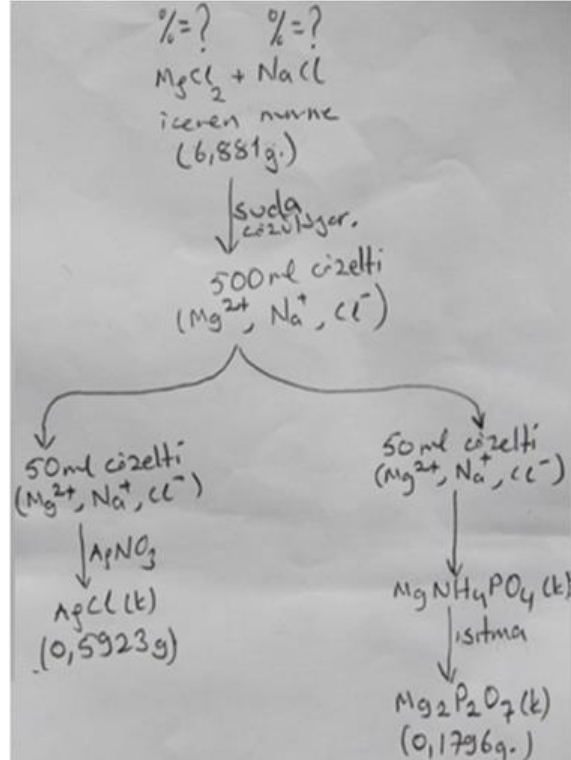 %=? %=?
MgCl₂ + NaCl
içeren numune
(6,881g.)
suda
çözülüyor.
500ml çözelti
(Mg²⁺, Na⁺, Cl⁻)
50ml çözelti
(Mg²⁺, Na⁺, Cl⁻)
AgNO₃
AgCl(k)
(0,5923g)
50ml çözelti
(Mg²⁺, Na⁺, Cl⁻)
MgNH₄PO₄(k)
ısıtma
Mg₂P₂O₇(k)
(0,1796g.)